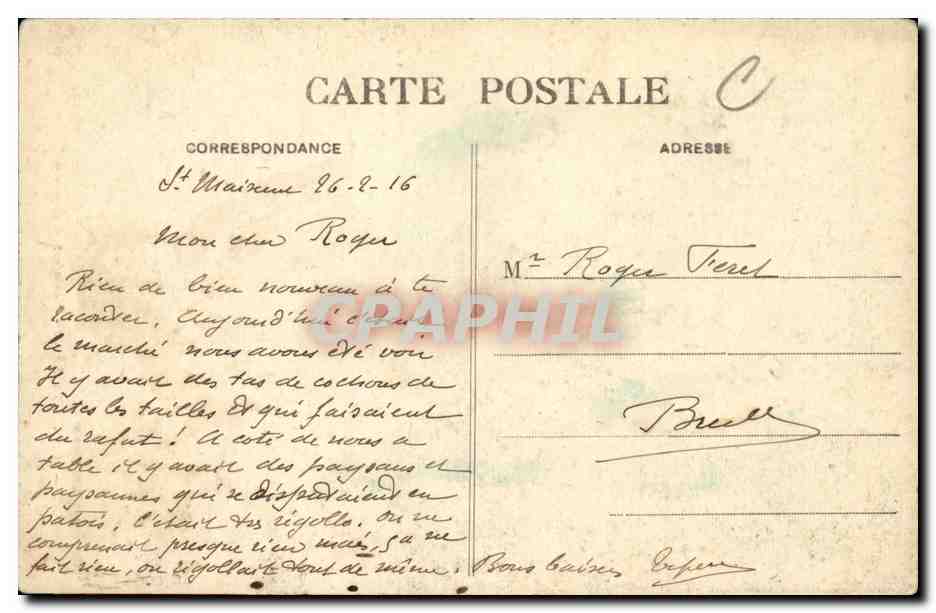 CARTE POSTALE
C
CORRESPONDANCE
ADRESSE
St Maixent 26-2-16
Mon cher Roger
Rien de bien nouveau à te
raconter. Aujourd'hui c'était
le marché nous avons été voir
Il y avait des tas de cochons de
toutes les tailles et qui faisaient
du rafut! A coté de nous a
table il y avait des paysans et
paysannes qui se disputaient en
patois, c'était très rigollo. On ne
comprenait presque rien mais, ça ne
fait rien, on rigollait tout de même. Bons baisers
Mr Roger Feret
CPARPHIL